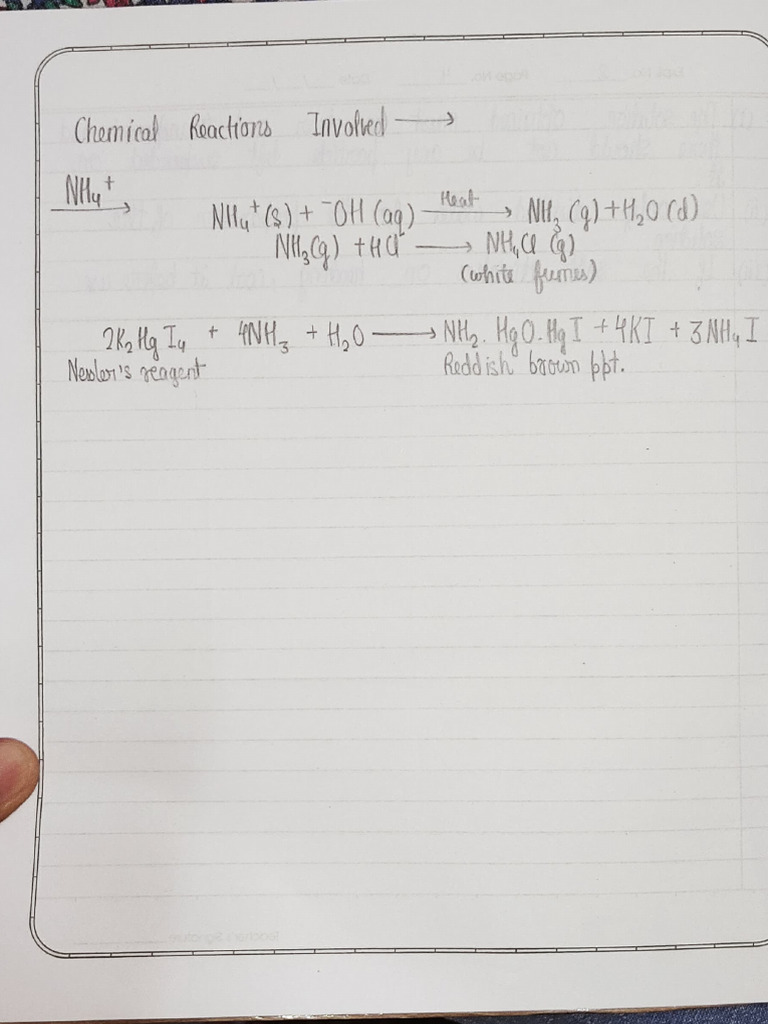 Chemical Reactions Involved ⟶
NH₄⁺
NH₄⁺(s) + ⁻OH (aq) —Heat→ NH₃ (g) + H₂O (l)
NH₃(g) + HCl ⟶ NH₄Cl (g)
(white fumes)
2K₂HgI₄ + 4NH₃ + H₂O ⟶ NH₂.HgO.HgI + 4KI + 3NH₄I
Nessler's reagent Reddish brown ppt.